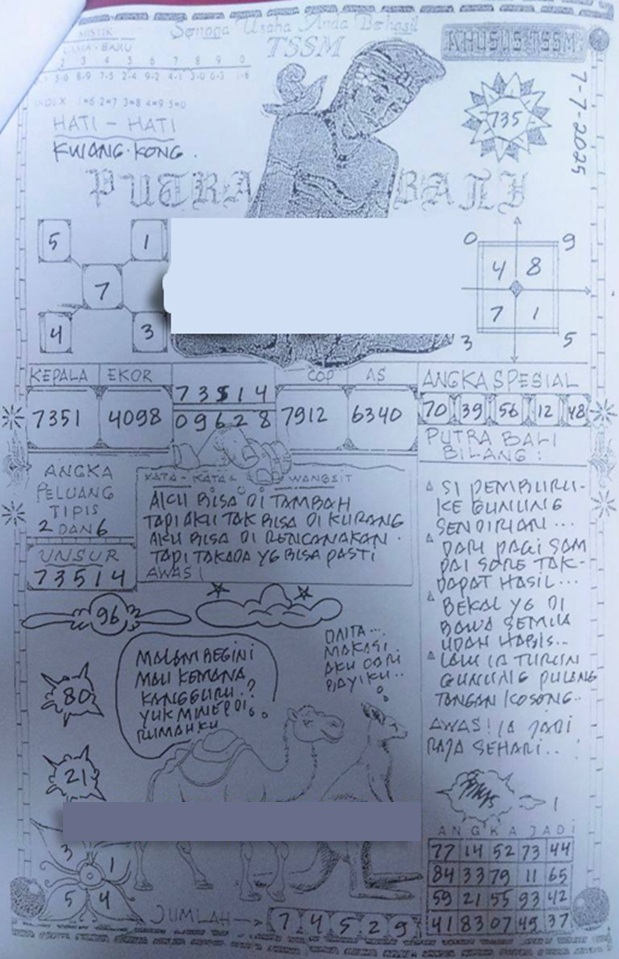 MISTIK
LAMA - BARU
2 3 4 5 6 7 8 9 0
INDEX 1=6 2=7 3=8 4=9 5=0
Semoga Usaha Anda Berhasil
TSSM
KHUSUS TSSM
7-7-2025
735
HATI - HATI
KWANG-KONG.
PUTRA BALI
5 1
7
4 3
0 9
4 8
7 1
3 5
KEPALA EKOR
7351 4098
73514
09628
COP AS
7912 6340
ANGKA SPESIAL
70 39 56 12 48
ANGKA
PELUANG
TIPIS
2 DAN 6
UNSUR
73514
KATA - KATA WANGSIT
AKU BISA DI TAMBAH
TAPI AKU TAK BISA DI KURANG
AKU BISA DI RENCANAKAN.
TAPI TAKADA YG BISA PASTI
AWAS!
PUTRA BALI
BILANG:
SI PEMBURU-
KE GUNUNG
SENDIRIAN...
DARI PAGI SAM
PAI SORE TAK-
DAPAT HASIL...
BEKAL YG DI
BAWA SEMUA
UDAH HABIS...
LALU IA TURUN
GUNUNG PULANG
TANGAN KOSONG..
AWAS! IA JADI
RAJA SEHARI..
96
80
21
MALAM BEGINI
MAU KEMANA
KANGGURU.?
YUK MINEP DI
RUMAHKU
MAKASI
AKU CARI
1
3 1
5 4
JUMLAH 7 4 5 2 9
ANGKA JADI
77 14 52 73 44
84 33 79 11 65
59 21 55 93 42
41 83 07 49 37